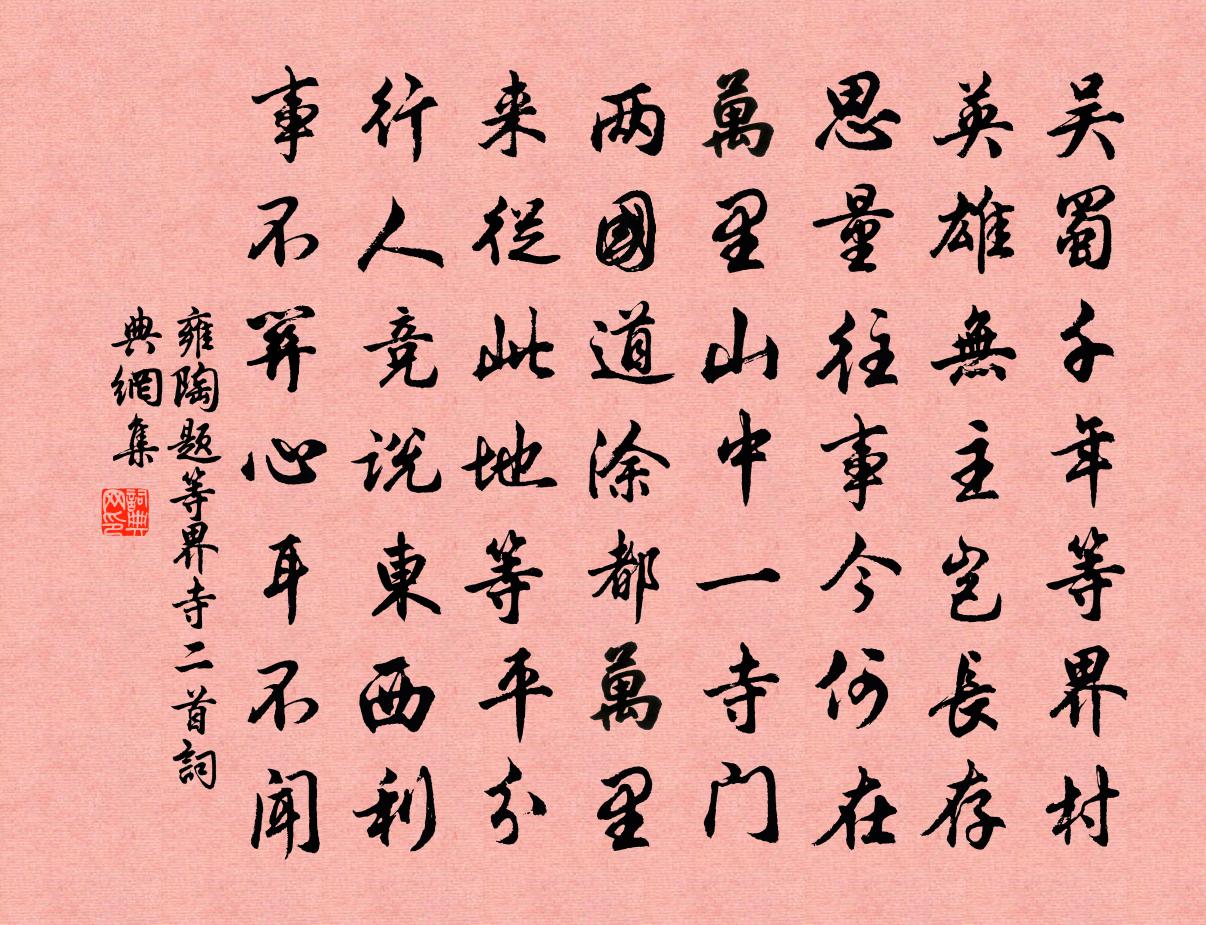 吴蜀千年等界村
英雄無主岂長存
思量往事今何在
萬里山中一寺门
两國道涂都萬里
来從此地等平分
行人竞说東西利
事不關心耳不聞
雍陶题等界寺二首詞
典網集
詞典
网印